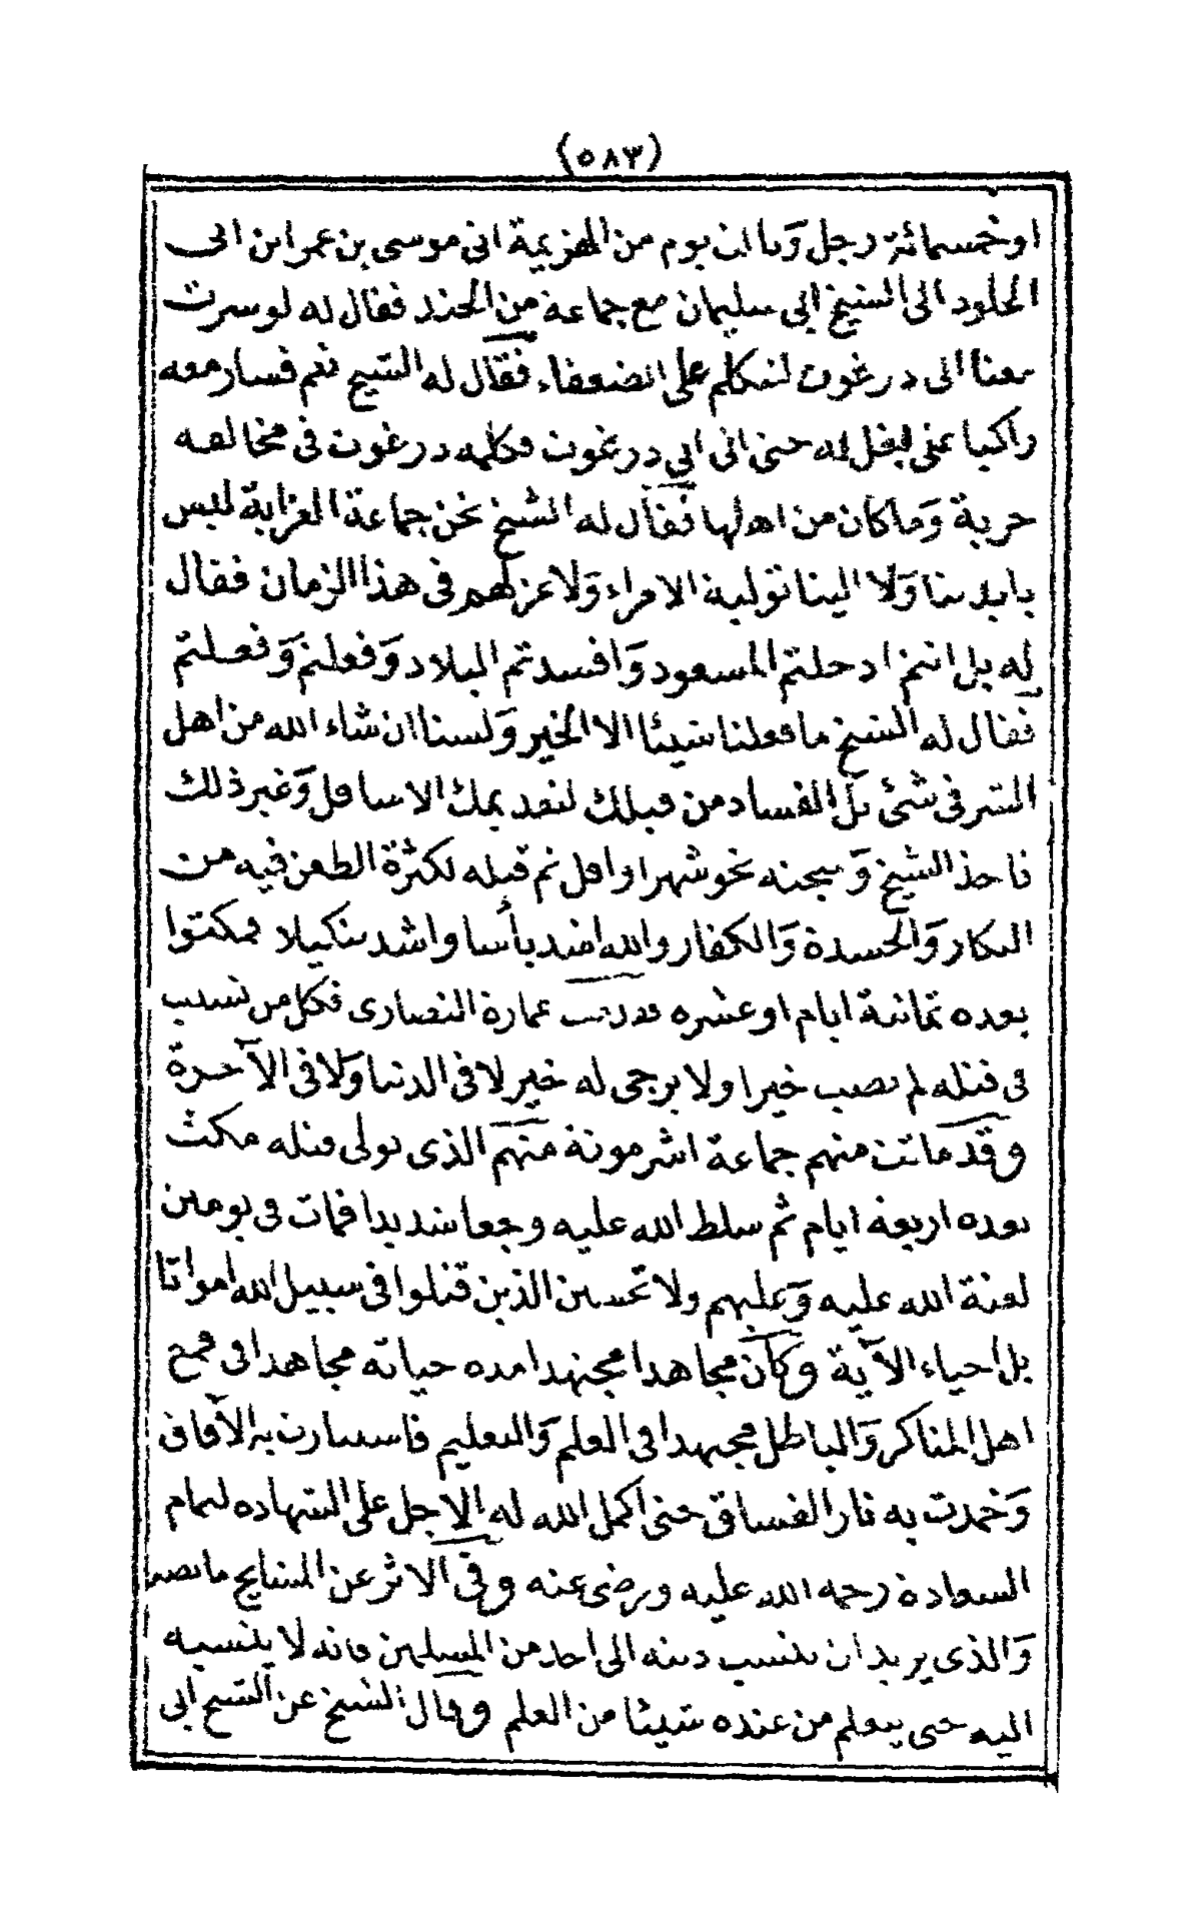 (٥٨٣)
او خمسمائة رجل وبا اثن يوم من الهزيمة اتى موسى بن عمر ابن ابى
الجلود الى الشيخ ابى سليمان مع جماعة من الجند فقال له لو سرت
معنا الى درغوت لنتكلم على الضعفاء فقال له الشيخ نعم فسار معه
راكبا على البغل له حتى اتى ابى درغوت فكلمه درغوت فى مخالفه
حربة وما كان من اهلها فقال له الشيخ نحن جماعة العزابة ليس
بايدينا ولا الينا تولية الامراء ولا عزلهم فى هذا الزمان فقال
له بل انتم ادخلتم المسعود وافسدتم البلاد وفعلتم وفعلتم
فقال له الشيخ ما فعلنا شيئا الا الخير ولسنا ان شاء الله من اهل
الشر فى شئ بل الفساد من قبلك لتقديمك الاسافل وغير ذلك
فاخذ الشيخ وسجنه نحو شهر او اقل ثم قتله لكثرة الطعن فيه من
النكار والحسدة والكفار والله اشد بأسا واشد تنكيلا فمكثوا
بعده ثمانية ايام او عشره عمارة النصارى فكل من تسبب
فى قتله لم يصب خيرا ولا يرجى له خير لا فى الدنيا ولا فى الآخرة
وقد ماتت منهم جماعة اشر موتة منهم الذى تولى قتله مكث
بعده اربعة ايام ثم سلط الله عليه وجعا شديدا فمات فى يومين
لعنة الله عليه وعليهم ولا تحسبن الذين قتلوا فى سبيل الله امواتا
بل احياء الآية وكان مجاهدا مجتهدا مده حياته مجاهدا فى قمع
اهل المناكر والباطل مجتهدا فى العلم والتعليم فاستنارت به الآفاق
وخمدت به نار الفساق حتى اكمل الله له الاجل على الشهاده لتمام
السعادة رحمه الله عليه ورضى عنه وفى الاثر عن المشايخ ما نصه
والذى يريد ان ينسب دينه الى احد من المسلمين فانه لا ينسبه
اليه حتى يتعلم من عنده شيئا من العلم وقال الشيخ عن الشيخ ابى